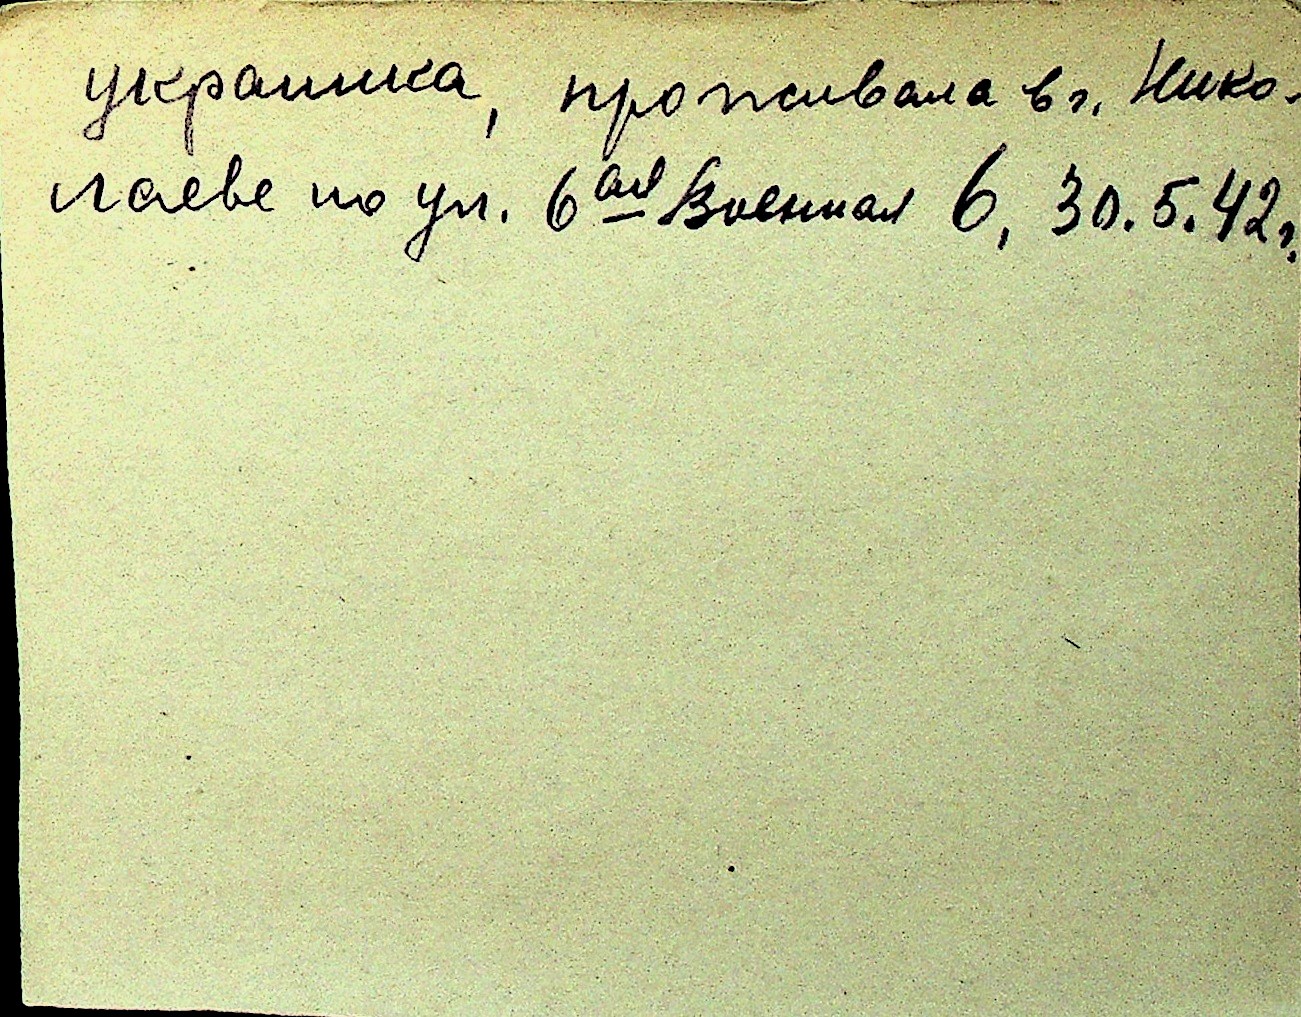 украинка, проживала в г. Нико-
лаеве по ул. 6ая Военная 6, 30.5.42 г.